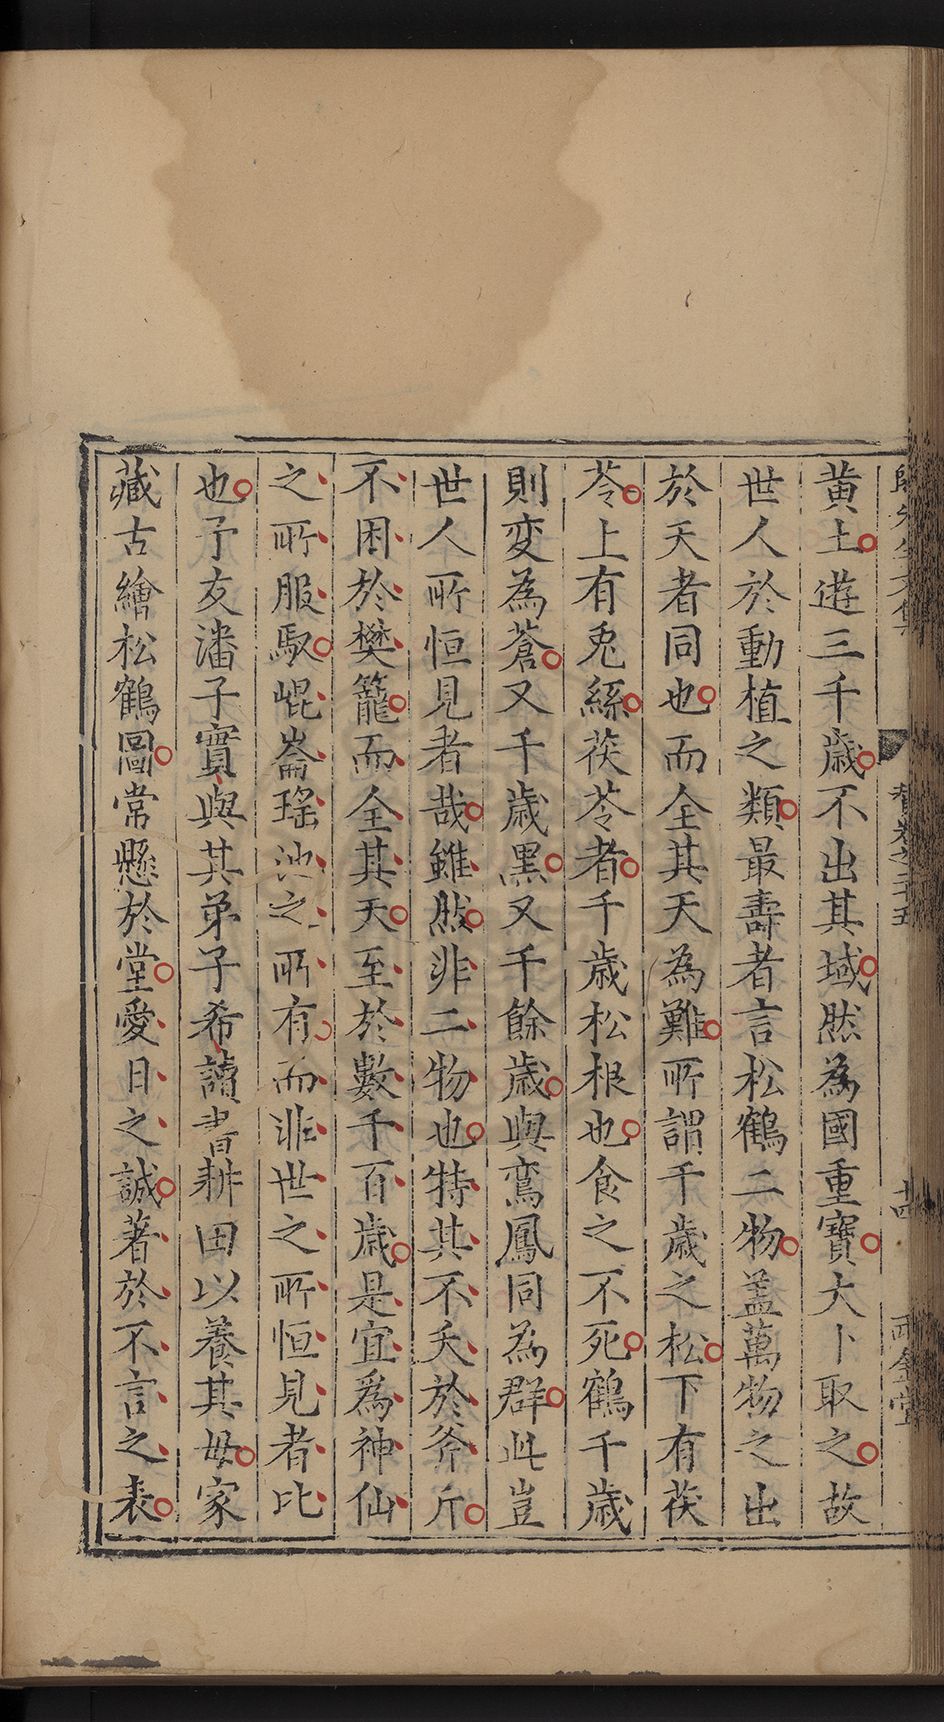 黄土遊三千歳不出其域然為國重寶大卜取之故
世人於動植之類最壽者言松鶴二物盖萬物之出
於天者同也而全其天為難所謂千歳之松下有茯
苓上有兎絲茯苓者千歳松根也食之不死鶴千歳
則变為蒼又千歳黑又千餘歳與鸞鳳同為群此豈
世人所恒見者哉雖然非二物也特其不夭於斧斤
不困於樊籠而全其天至於數千百歳是宜爲神仙
之所服馭崐崙瑤池之所有而非世之所恒見者比
也予友潘子實與其弟子希讀書耕田以養其母家
藏古繪松鶴圖常懸於堂愛日之誠著於不言之表